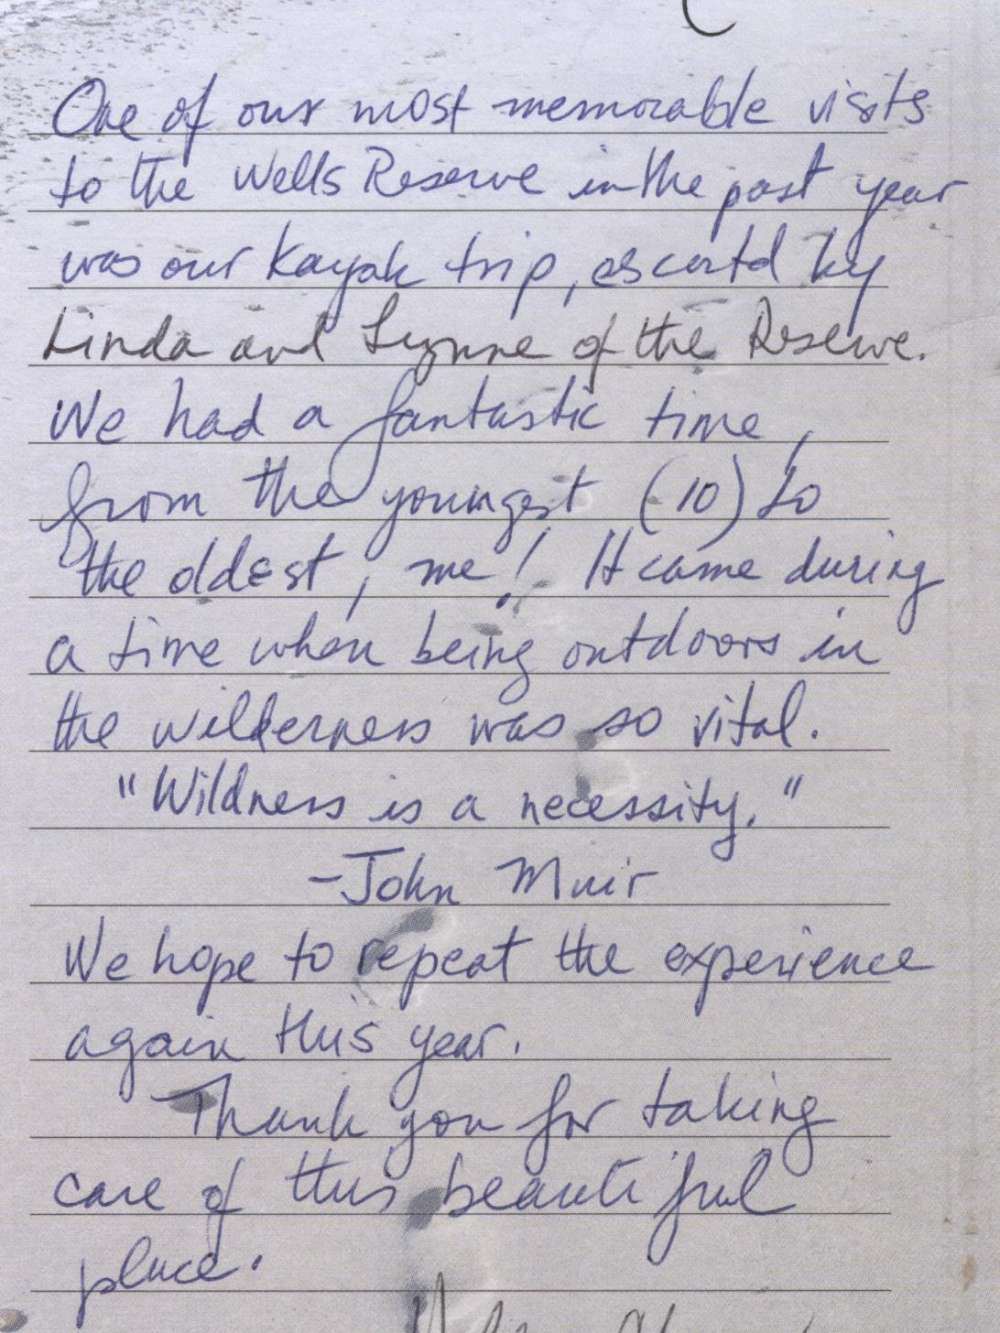 One of our most memorable visits
to the Wells Reserve in the past year
was our kayak trip, escortd by
Linda and Lynne of the Reserve.
We had a fantastic time,
from the youngest (10) to
the oldest, me! It came during
a time when being outdoors in
the wilderness was so vital.
"Wildness is a necessity."
-John Muir
We hope to repeat the experience
again this year.
Thank you for taking
care of this beautiful
place.